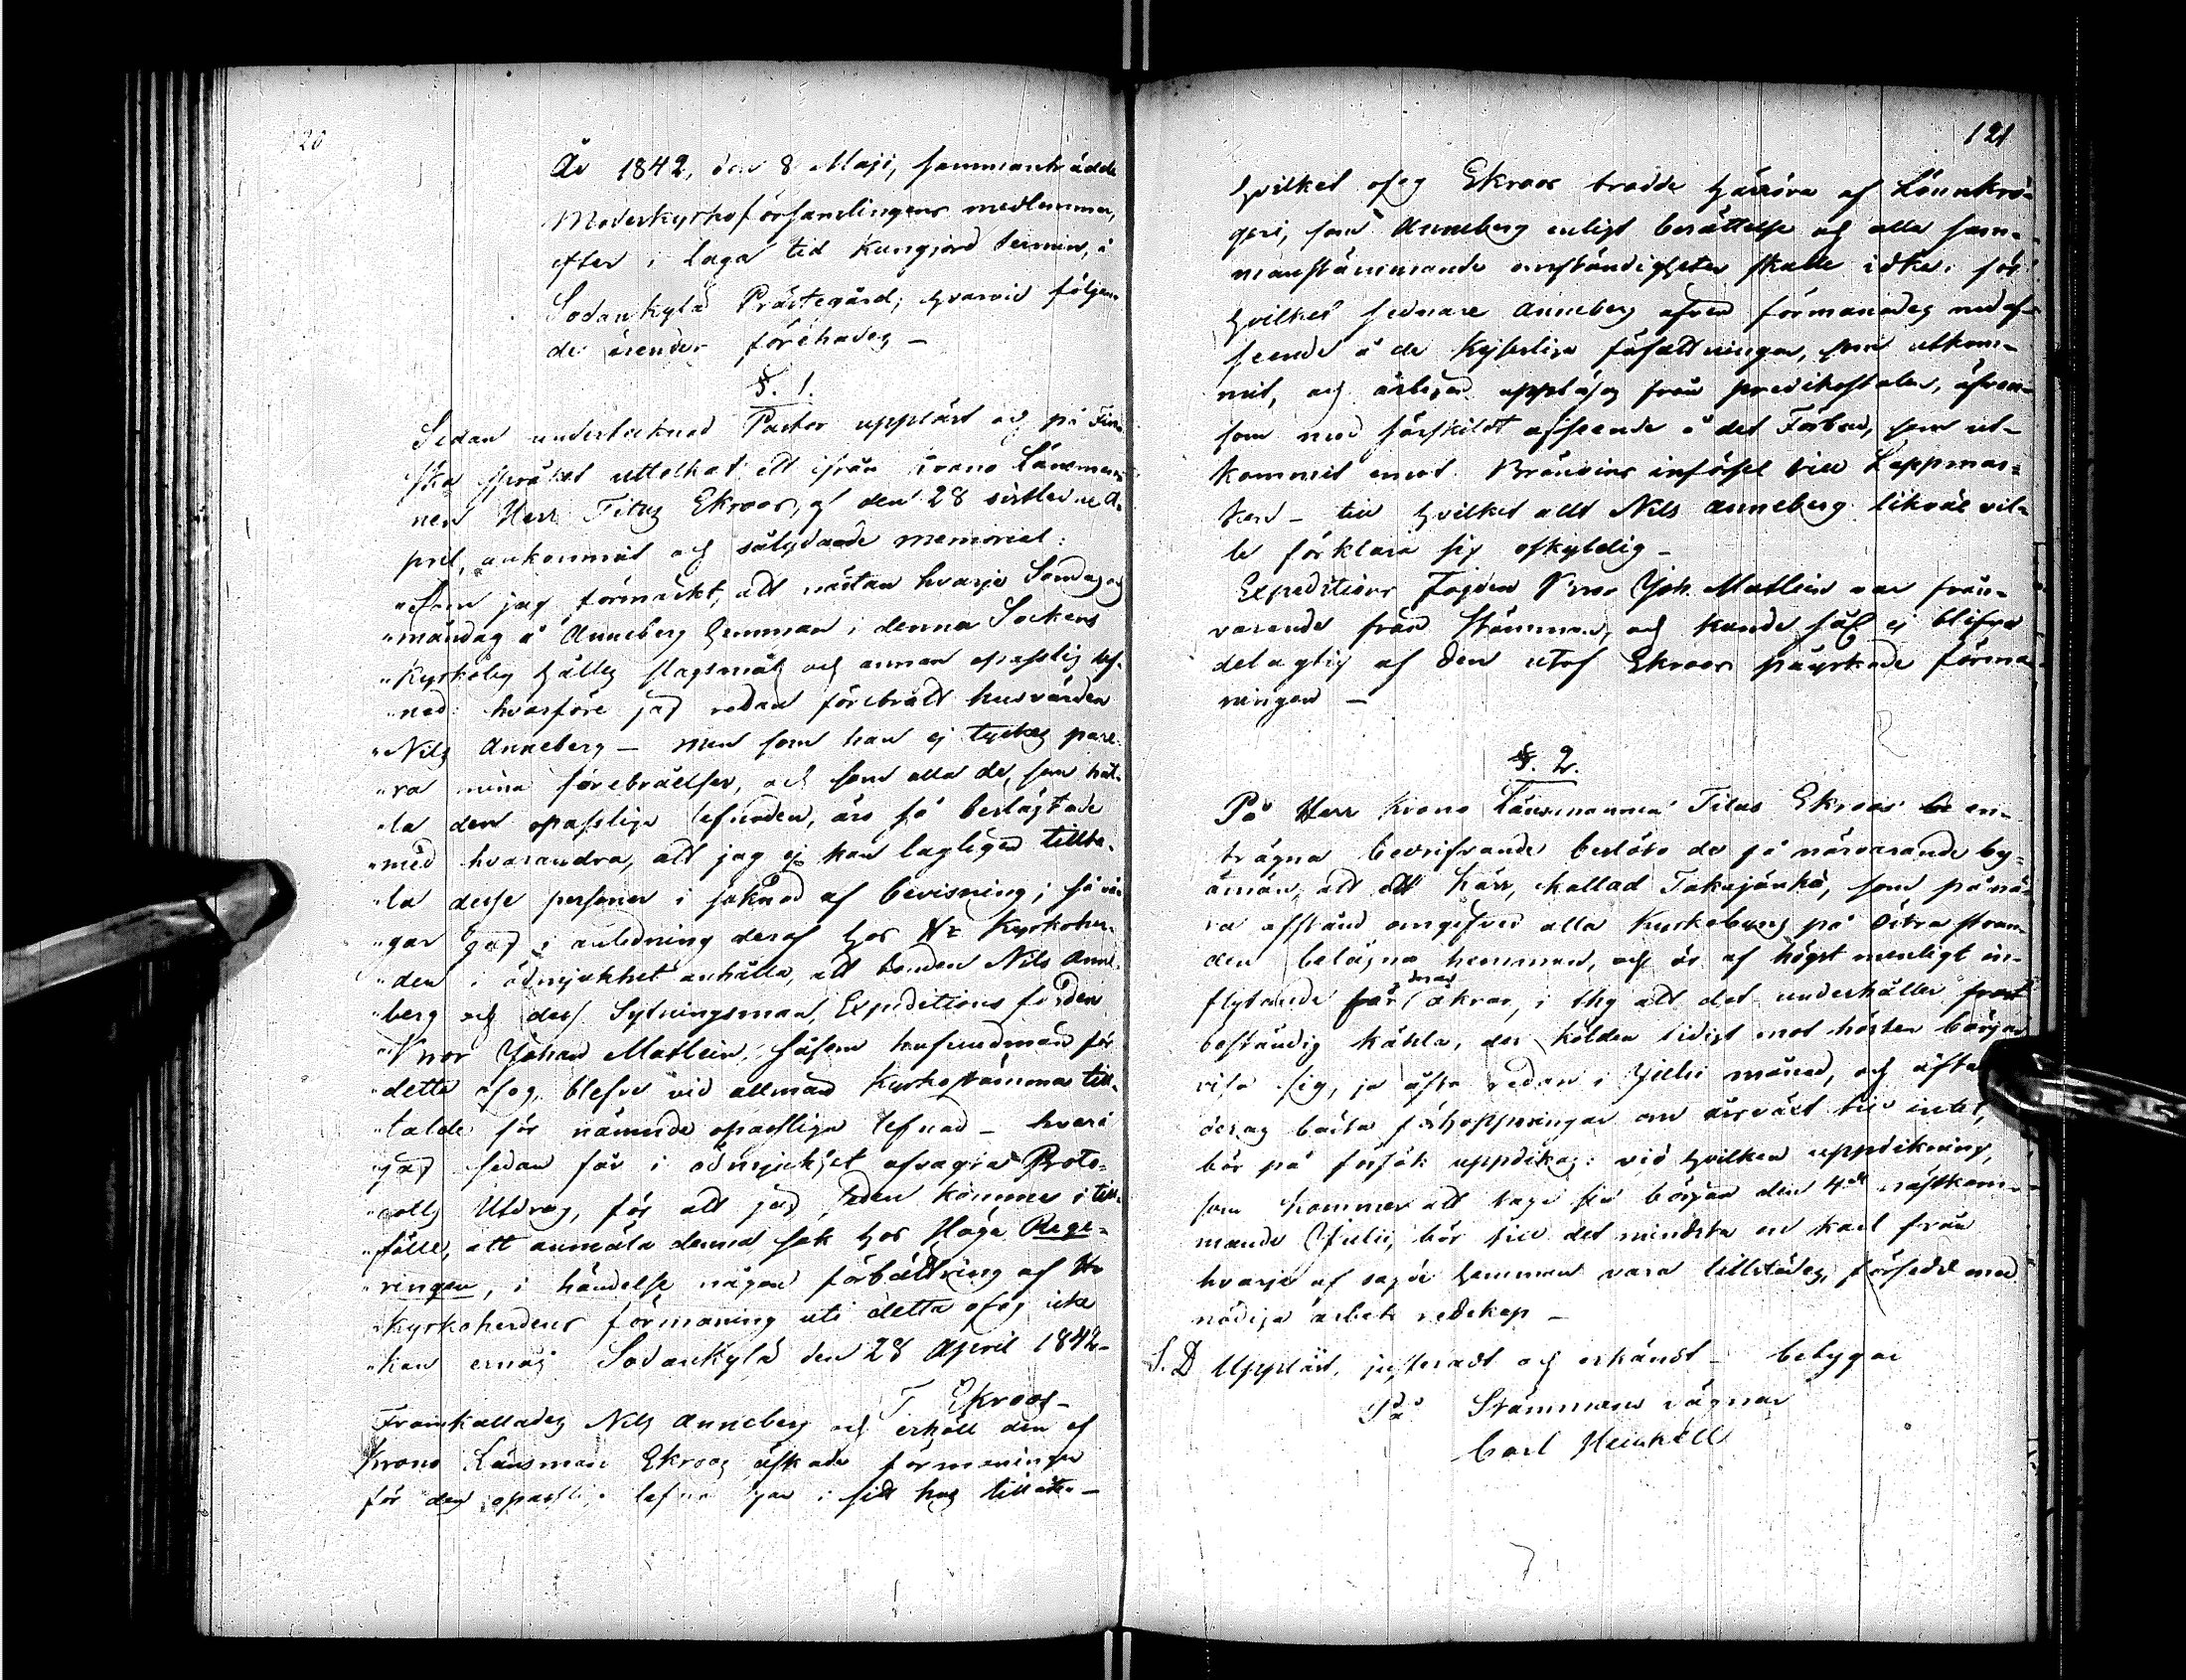 120
År 1842, den 8 Maji, sammanträdde
Moderkyrkoförsamlingens medlemmar,
efter i laga tid kungjord termin, i
Sodankylä Prästegård; hvarvid följan-
de ärender förehades –
§. 1.
Sedan undertecknad Pastor uppläst och på Fin-
ska språket uttolkat ett ifrån Krono Länsman-
nen Herr Titus Ekroos, af den 28 sistledne A-
pril, ankommit och sålydande memorial:
"Som jag förmärkt, att nästan hvarje Söndag och
"måndag å Anneberg hemman i denna Sockens
"Kyrkoby hålles slagsmål och annan opasslig lef-
"nad: hvarföre jag redan förebrått husvärden
"Nils Anneberg – men som han ej tyckes pare-
"ra mina förebråelser, och som alla de, som hål-
"la den opassliga lefnaden, äro så beslägtade
"med hvarandra, att jag ej kan lagligen tillta-
"la desse personer i saknad af bevisning; så vå-
"gar jag i anledning deraf hos Hr Kyrkoher-
"den i ödmjukhet anhålla, att bonden Nils Anne-
"berg och dess Sytningsman, Expeditions fogden
" Johan Matlein, såsom hufvudmän för
"detta ofog, blefve vid allmän Kyrkostämma till-
"talde för nämnde opassliga lefnad – hvari
"jag sedan får i ödmjukhet afvagta Proto-
"colls Utdrag, för att jag sedan komme i till-
"fälle, att anmäla denna sak hos Höga Rege-
"ringen, i händelse någon förbättring af Hr
"Kyrkoherdens förmaning uti detta ofog icke
"kan ernås Sodankylä den 28 April 1842 –
T Ekroos –
Framkallades Nils Anneberg och erhöll den af
Krono Länsman Ekroos äskade förmaningen
för den opassliga i sitt hus
121
hvilket ofog Ekroos trodde härröra af Lönnkrö-
geri, som Anneberg enligt berättelse och alla sam-
manstämmande omständigheter skulle idka: för
hvilket sednare Anneberg äfven förmanades med af-
seende å de Kejserliga författningar, som utkom-
mit, och årligen uppläsas från predikostolen, äfven-
som med särskildt afseende å det Förbud, som ut-
kommit emot Bränvins införsel till Lappmar-
ken – till hvilket allt Nils Anneberg likväl vil-
le förklara sig oskyldig –
Expeditions Fogden Joh. Matlein var från-
varande från stämman, och kunde så ej blifva
delagtig af den utaf Ekroos påyrkade förma-
ningen –
§. 2.
På Herr Krono Länsmannen Titus Ekroos en-
trägna bedrifvande beslöto de på närvarande by-
ämän, att ett kärr, kallad Takajänkä, som på nä-
ra afstånd omgifver alla Kyrkobyns på Östra stran-
den belägna hemman, och är af högst menligt in-
flytande för deras åkrar, i thy att det underhåller
beständig kähla, der kölden tidigt mot hösten börjar
visa sig, ja ofta redan i Julii månad, och
deras bästa förhoppningar om årsväxt till intet,
bör på försök uppdikas: vid hvilken uppdikning,
som kommer att taga sin början den 4de nästkom-
mande Julii, bör till det mindsta en karl från
hvarje af sagde hemman vara tillstädes, försedd med
nödiga arbets redskap –
S. D Uppläst, justeradt och erkändt – betygar
På Stämmans vägnar
Carl Heickell